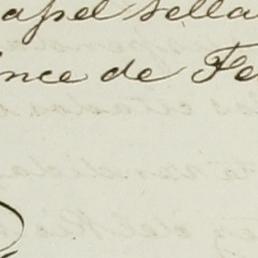 apel sella
ince de Fe